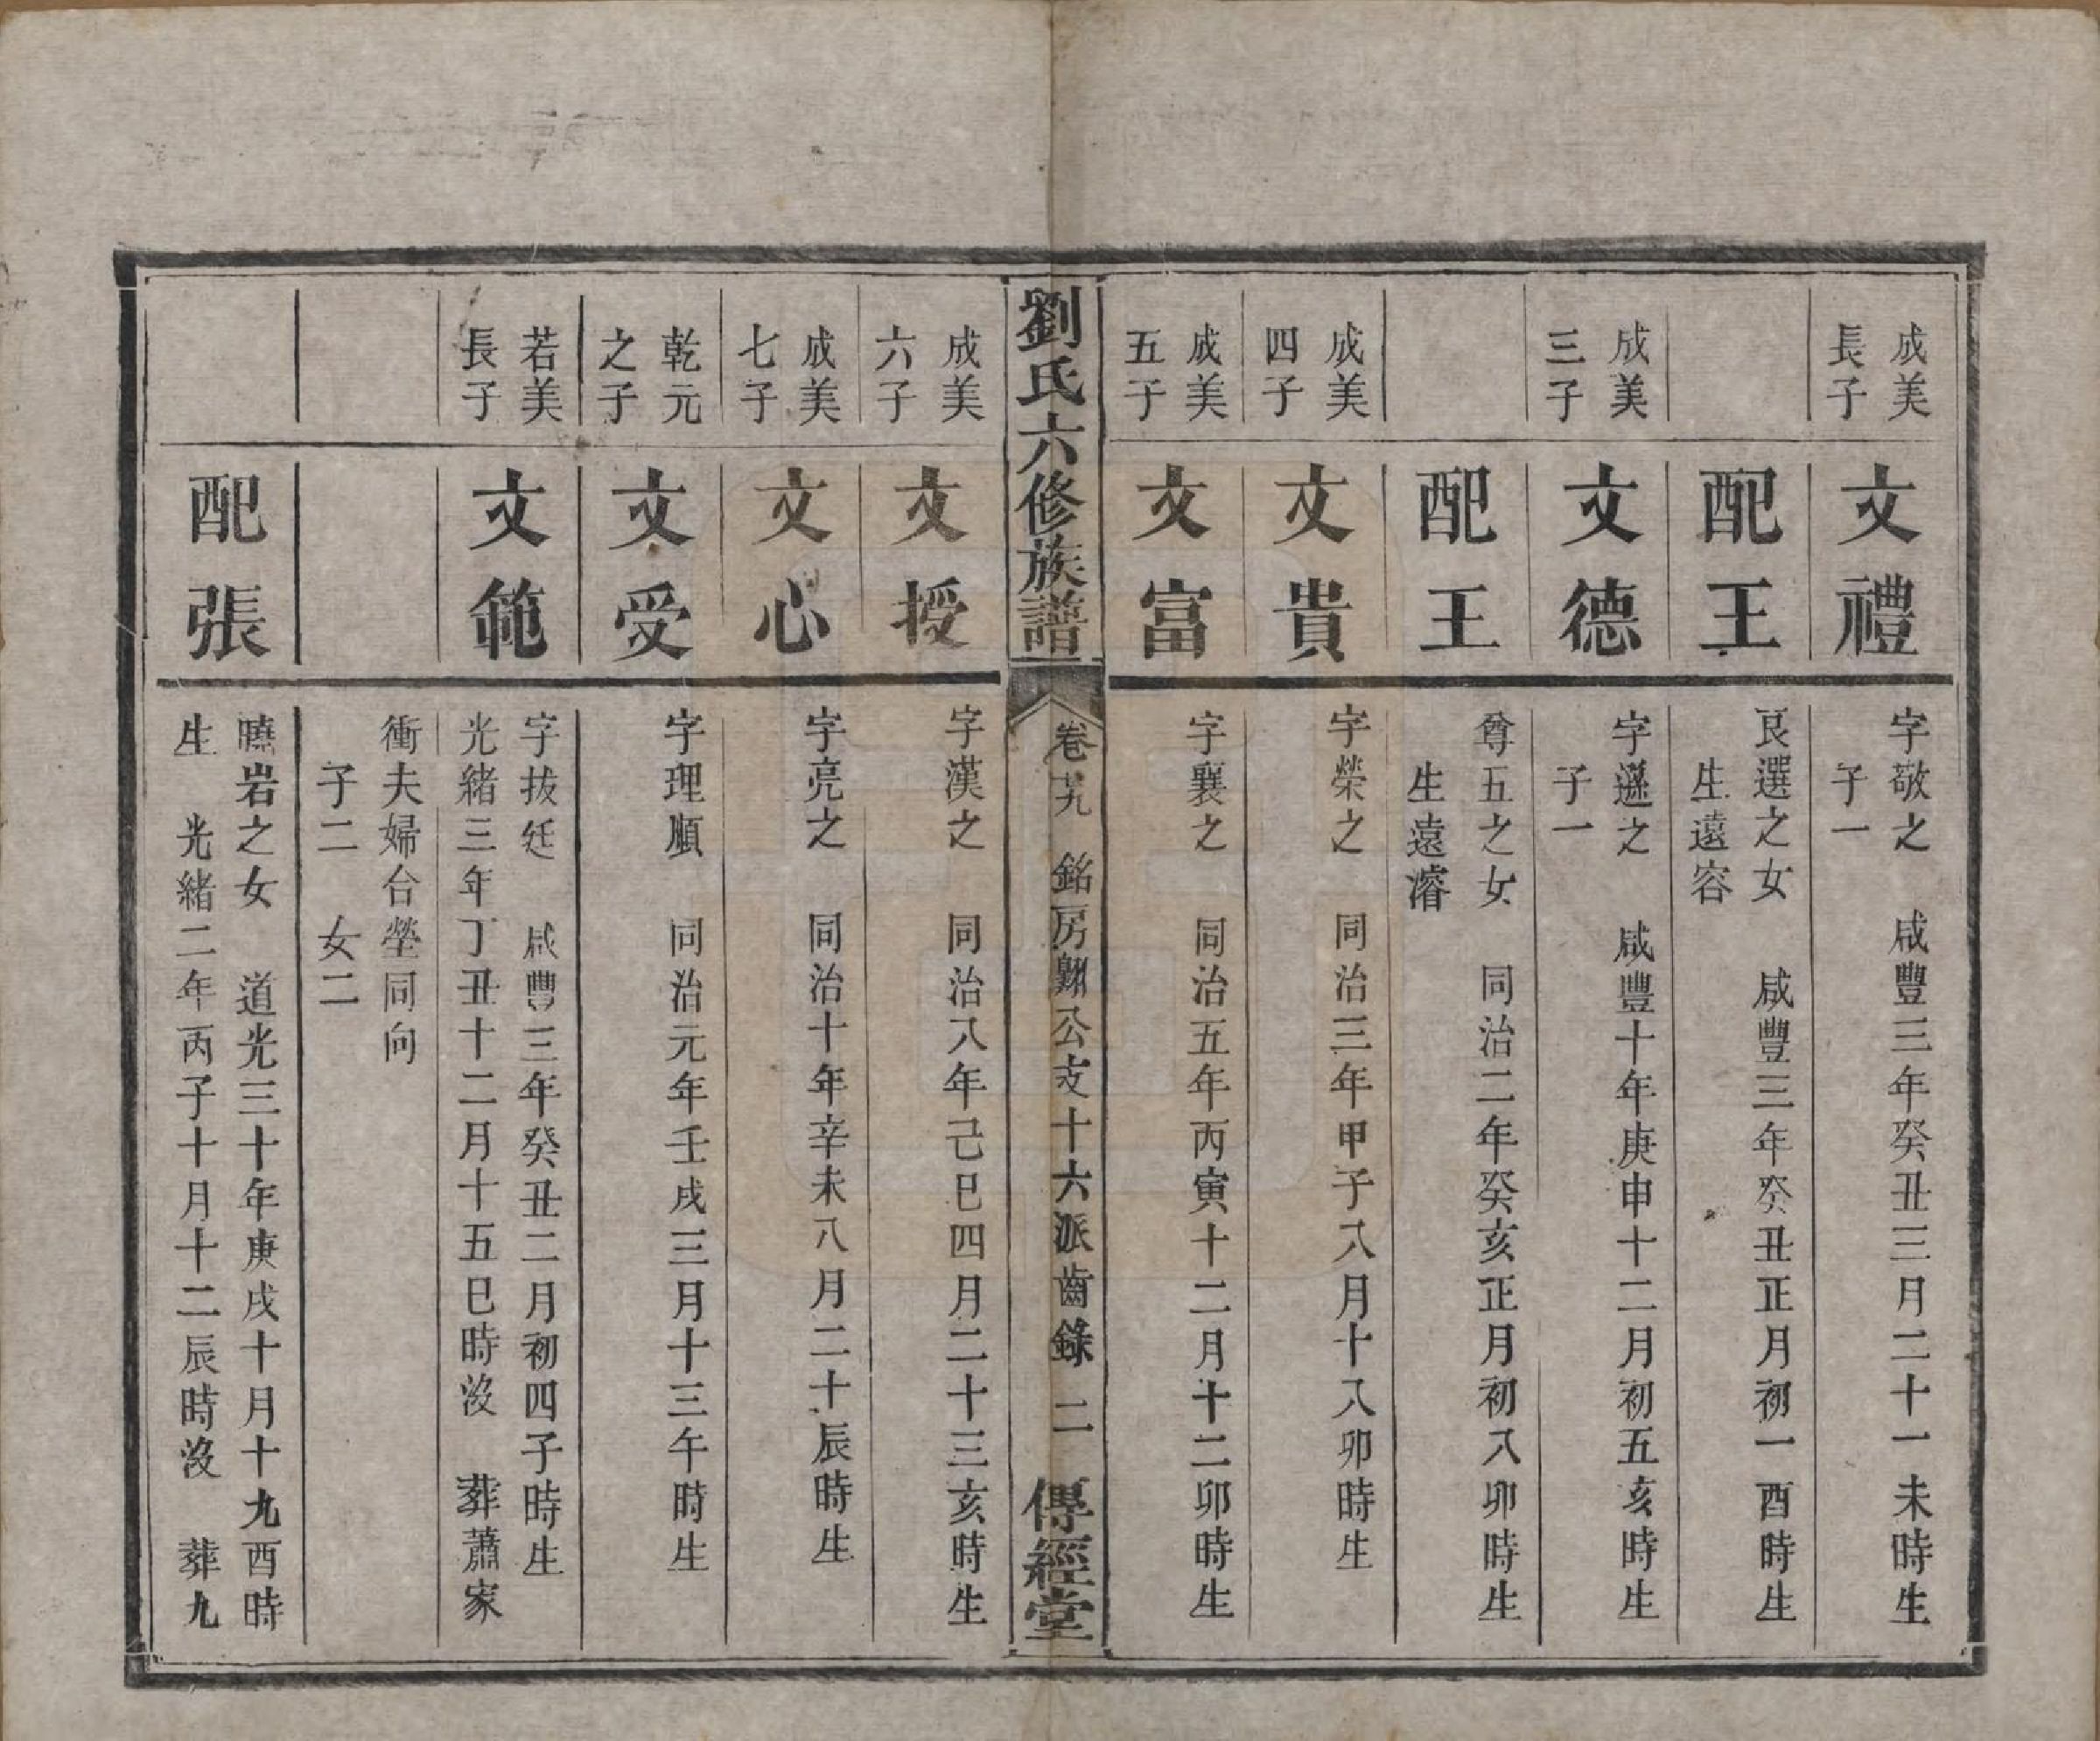 成美
長子
文禮
字敬之　咸豐三年癸丑三月二十一未時生
子一
配王
良選之女　咸豐三年癸丑正月初一酉時生
生遠容
成美
三子
文德
字遜之　咸豐十年庚申十二月初五亥時生
子一
配王
尊五之女　同治二年癸亥正月初八卯時生
生遠濬
成美
四子
文貴
字榮之　同治三年甲子八月十八卯時生
成美
五子
文富
字襄之　同治五年丙寅十二月十二卯時生
劉氏六修族譜
卷　銘房翺公支十六派齒錄　二
傳經堂
成美
六子
文授
字漢之　同治八年己巳四月二十三亥時生
成美
七子
文心
字亮之　同治十年辛未八月二十辰時生
乾元
之子
文受
字理順　同治元年壬戌三月十三午時生
若美
長子
文範
字拔廷　咸豐三年癸丑二月初四子時生
光緒三年丁丑十二月十五巳時沒　葬蕭家
衝夫婦台塋同向
子二　女二
配張
曉岩之女　道光三十年庚戌十月十九酉時
生　光緒二年丙子十月十二辰時沒　葬九